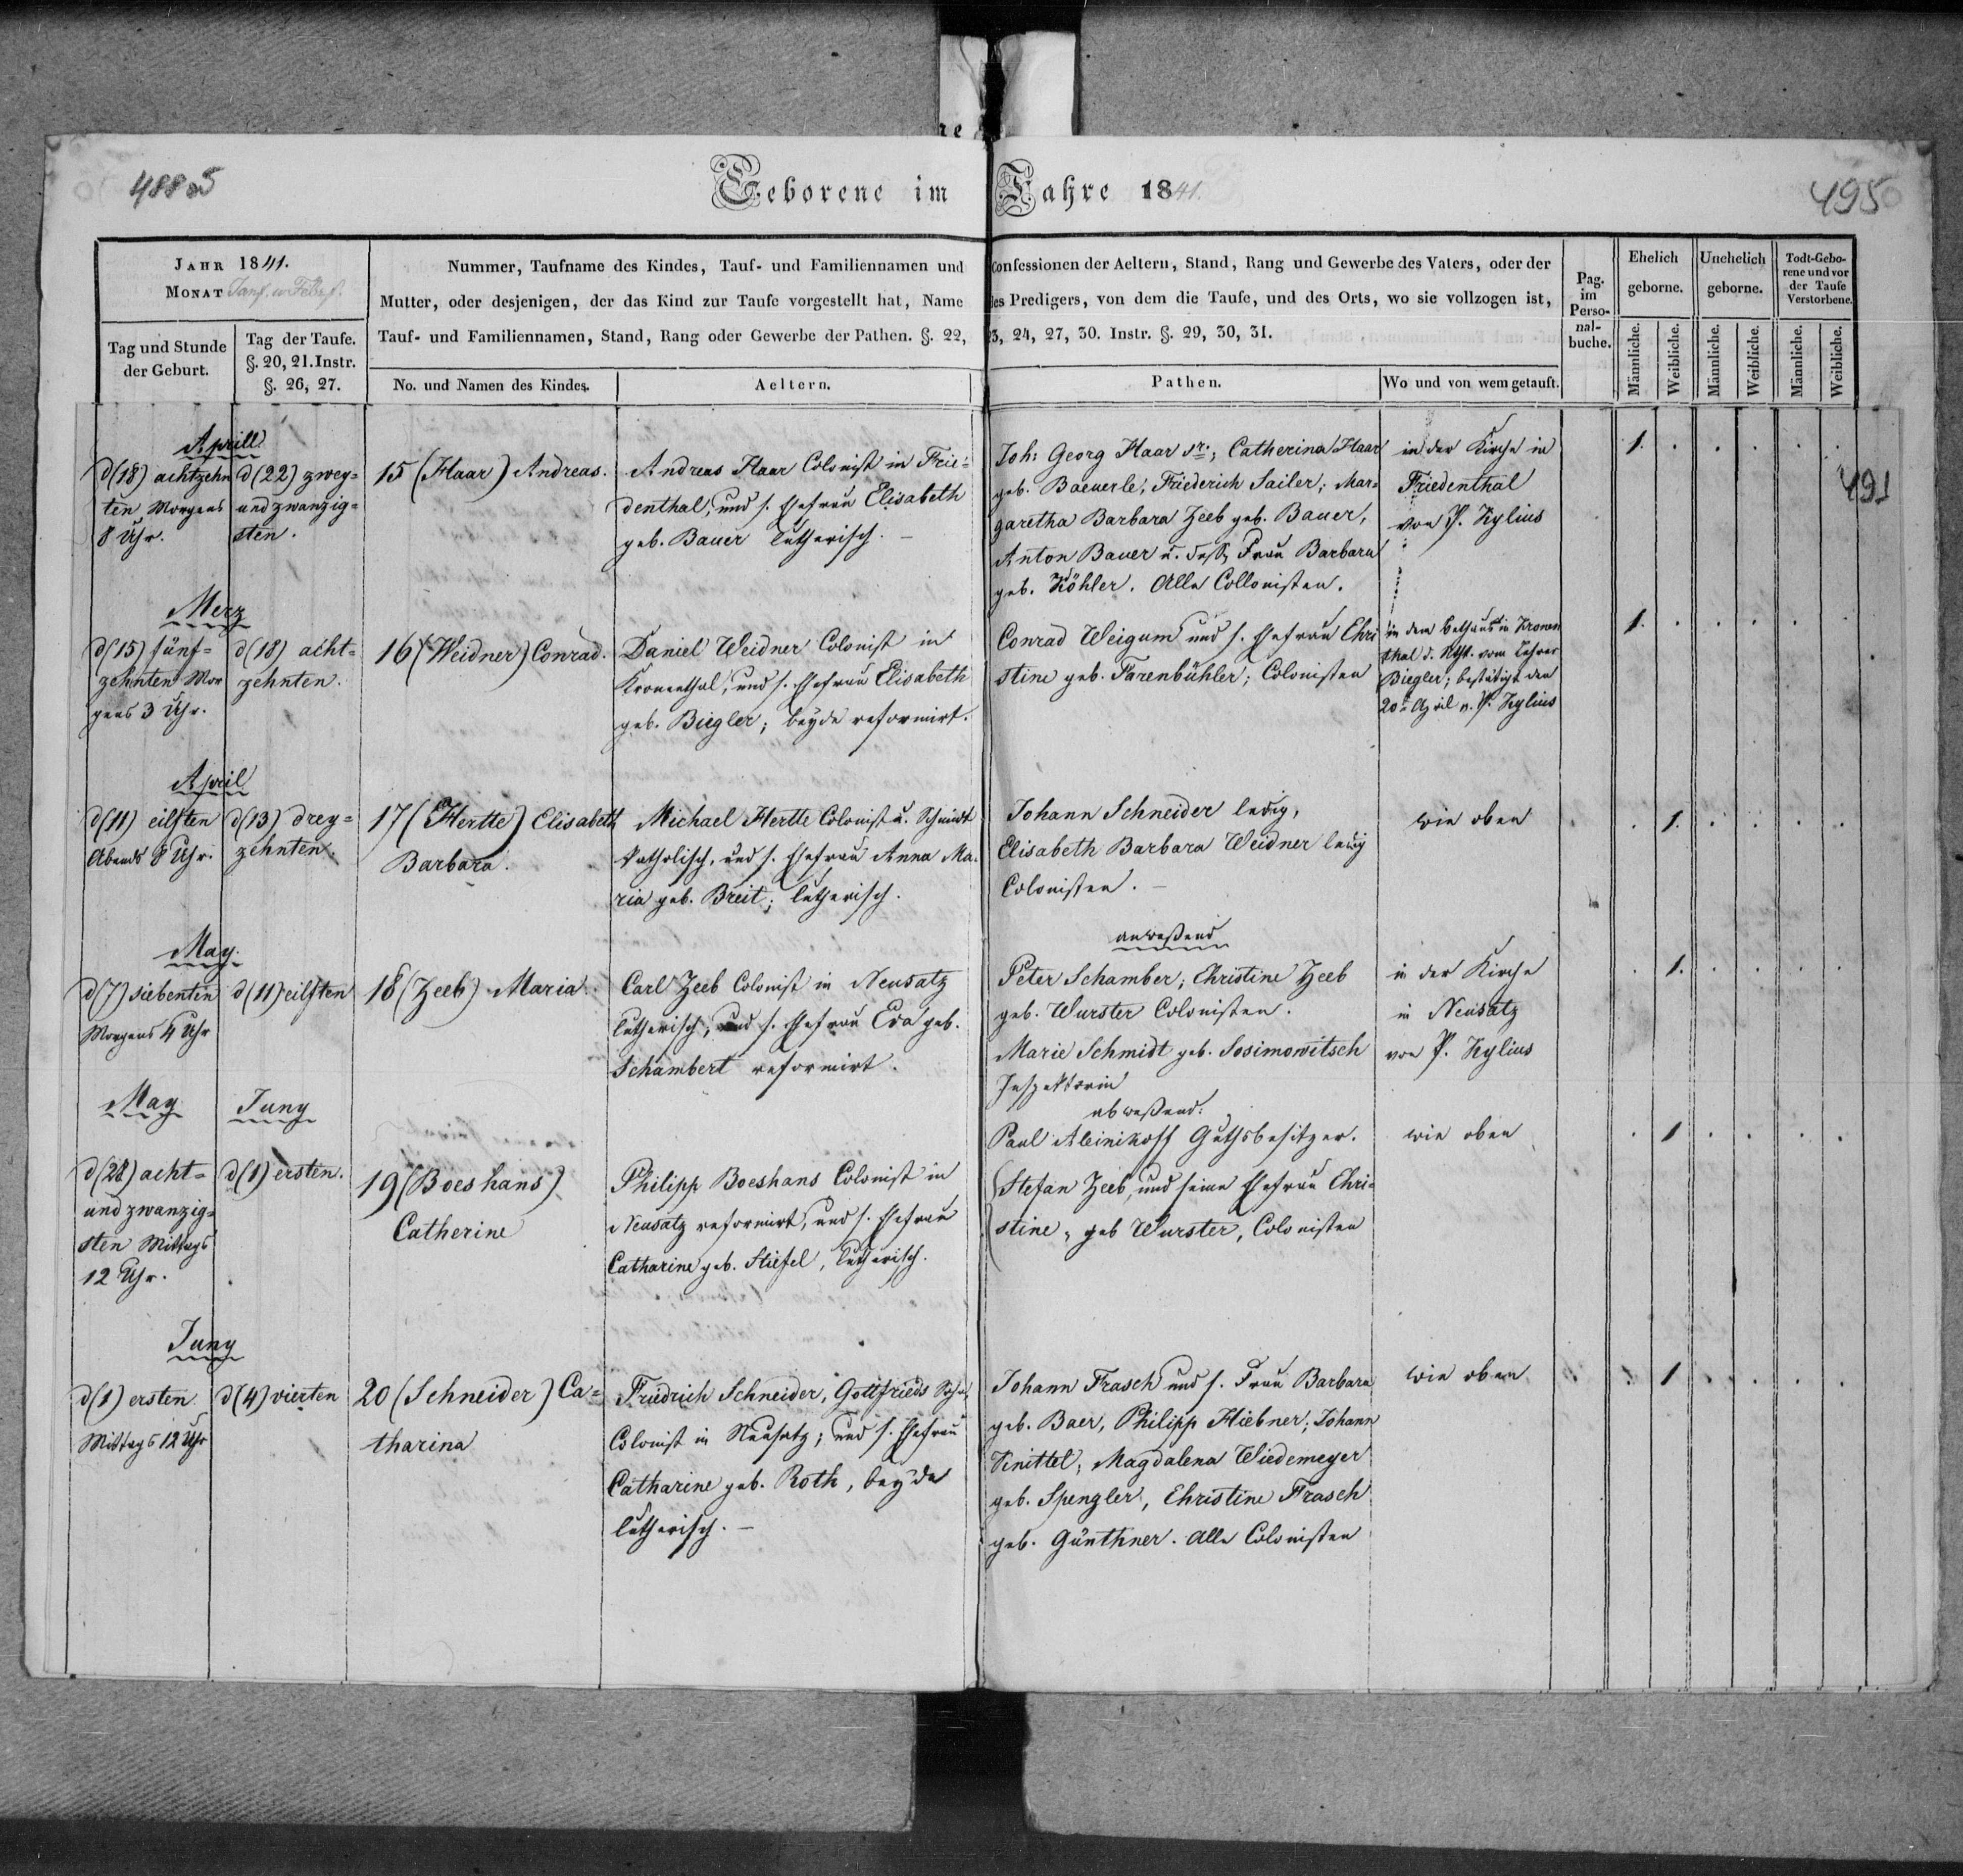 488 a5
Geborene im Jahre 1841.
495
JAHR 1841.
MONAT
Tag und Stunde der Geburt.
Tag der Taufe. §. 20, 21. Instr. §. 26, 27.
Nummer, Taufname des Kindes, Tauf- und Familiennamen und Confessionen der Aeltern, Stand, Rang und Gewerbe des Vaters, oder der
Mutter, oder desjenigen, der das Kind zur Taufe vorgestellt hat, Name des Predigers, von dem die Taufe, und des Orts, wo sie vollzogen ist,
Tauf- und Familiennamen, Stand, Rang oder Gewerbe der Pathen. §. 22, 23, 24, 27, 30. Instr. §. 29, 30, 31.
No. und Namen des Kindes.
Aeltern.
Pathen.
Wo und von wem getauft.
Pag. im Personal-buche.
Ehelich geborne.
Unehelich geborne.
Todt-Geborene und vor der Taufe Verstorbene.
Männliche.
Weibliche.
Männliche.
Weibliche.
Männliche.
Weibliche.
491
Aprill
d (18) achtzehn
ten Morgens
8 Uhr.
d (22) zwey=
und zwanzig=
sten.
15 (Haar) Andreas.
Andreas Haar Colonist in Frie=
denthal, und s. Ehefrau Elisabeth
geb. Bauer lutherisch. –
Joh: Georg Haar sr:; Catherina Haar
geb. Baeuerle, Friederich Sailer; Mar=
garetha Barbara Zeeb geb. Bauer,
Anton Bauer u. dess. Frau Barbara
geb. Köhler. Alle Collonisten.
in der Kirche in
Friedenthal
von P. Kylius
1. . . . . .
Merz
d (15) fünf=
zehnten Mor
gens 3 Uhr.
d (18) acht=
zehnten.
16 (Weidner) Conrad.
Daniel Weidner Colonist in
Kronenthal, und s. Ehefrau Elisabeth
geb. Biegler; beyde reformirt.
Conrad Weigum und s. Ehefrau Chri
stine geb. Farenbühler; Colonisten
in dem Bethaus in Kronen
thal d. Ntht. vom Lehrer
Biegler; bestätigt den
20n April v. P. Kylius
1. . . . . .
April
d (11) eilften
Abends 8 Uhr.
d (13) drey=
zehnten.
17 (Hertte) Elisabeth
Barbara.
Michael Hertte Colonist u. Schmidt
katholisch, und s. Ehefrau Anna Ma
ria geb. Breit; lutherisch.
Johann Schneider ledig,
Elisabeth Barbara Weidner ledig
Colonisten. –
wie oben
. 1. . . . .
May.
d (7) siebenten
Morgens 4 Uhr
d (11) eilften
18 (Zeeb) Maria.
Carl Zeeb Colonist in Neusatz
lutherisch, und s. Ehefrau Eva geb.
Schambert reformirt.
anweßend
Peter Schamber; Christine Zeeb
geb. Wurster Colonisten.
Marie Schmidt geb. Sosimowitsch
Inspektorin
abweßend:
Paul Aleinikoff Guthsbesitzer.
in der Kirche
in Neusatz
von P. Kylius
. 1. . . . .
May
Juny
d (28) acht=
und zwanzig=
sten Mittags
12 Uhr.
d (1) ersten.
19 (Boeshans)
Catherine
Philipp Boeshans Colonist in
Neusatz reformirt, und s. Ehefrau
Catharine geb. Stiefel, lutherisch.
Stefan Zeeb, und seine Ehefrau Chri=
stine, geb Wurster, Colonisten
wie oben
. 1 . . . .
Juny
d (1) ersten
Mittags 12 Uhr
d (4) vierten
20 (Schneider) Ca=
tharina
Friedrich Schneider, Gottfrieds Sohn,
Colonist in Neusatz; und s. Ehefrau
Catharine geb. Roth, beyde
lutherisch. –
Johann Frasch und s. Frau Barbara
geb. Baer, Philipp Hiebner; Johann
Knittel; Magdalena Wiedemeyer
geb. Spengler, Christine Frasch
geb. Günthner. Alle Colonisten
wie oben
. 1 . . . .